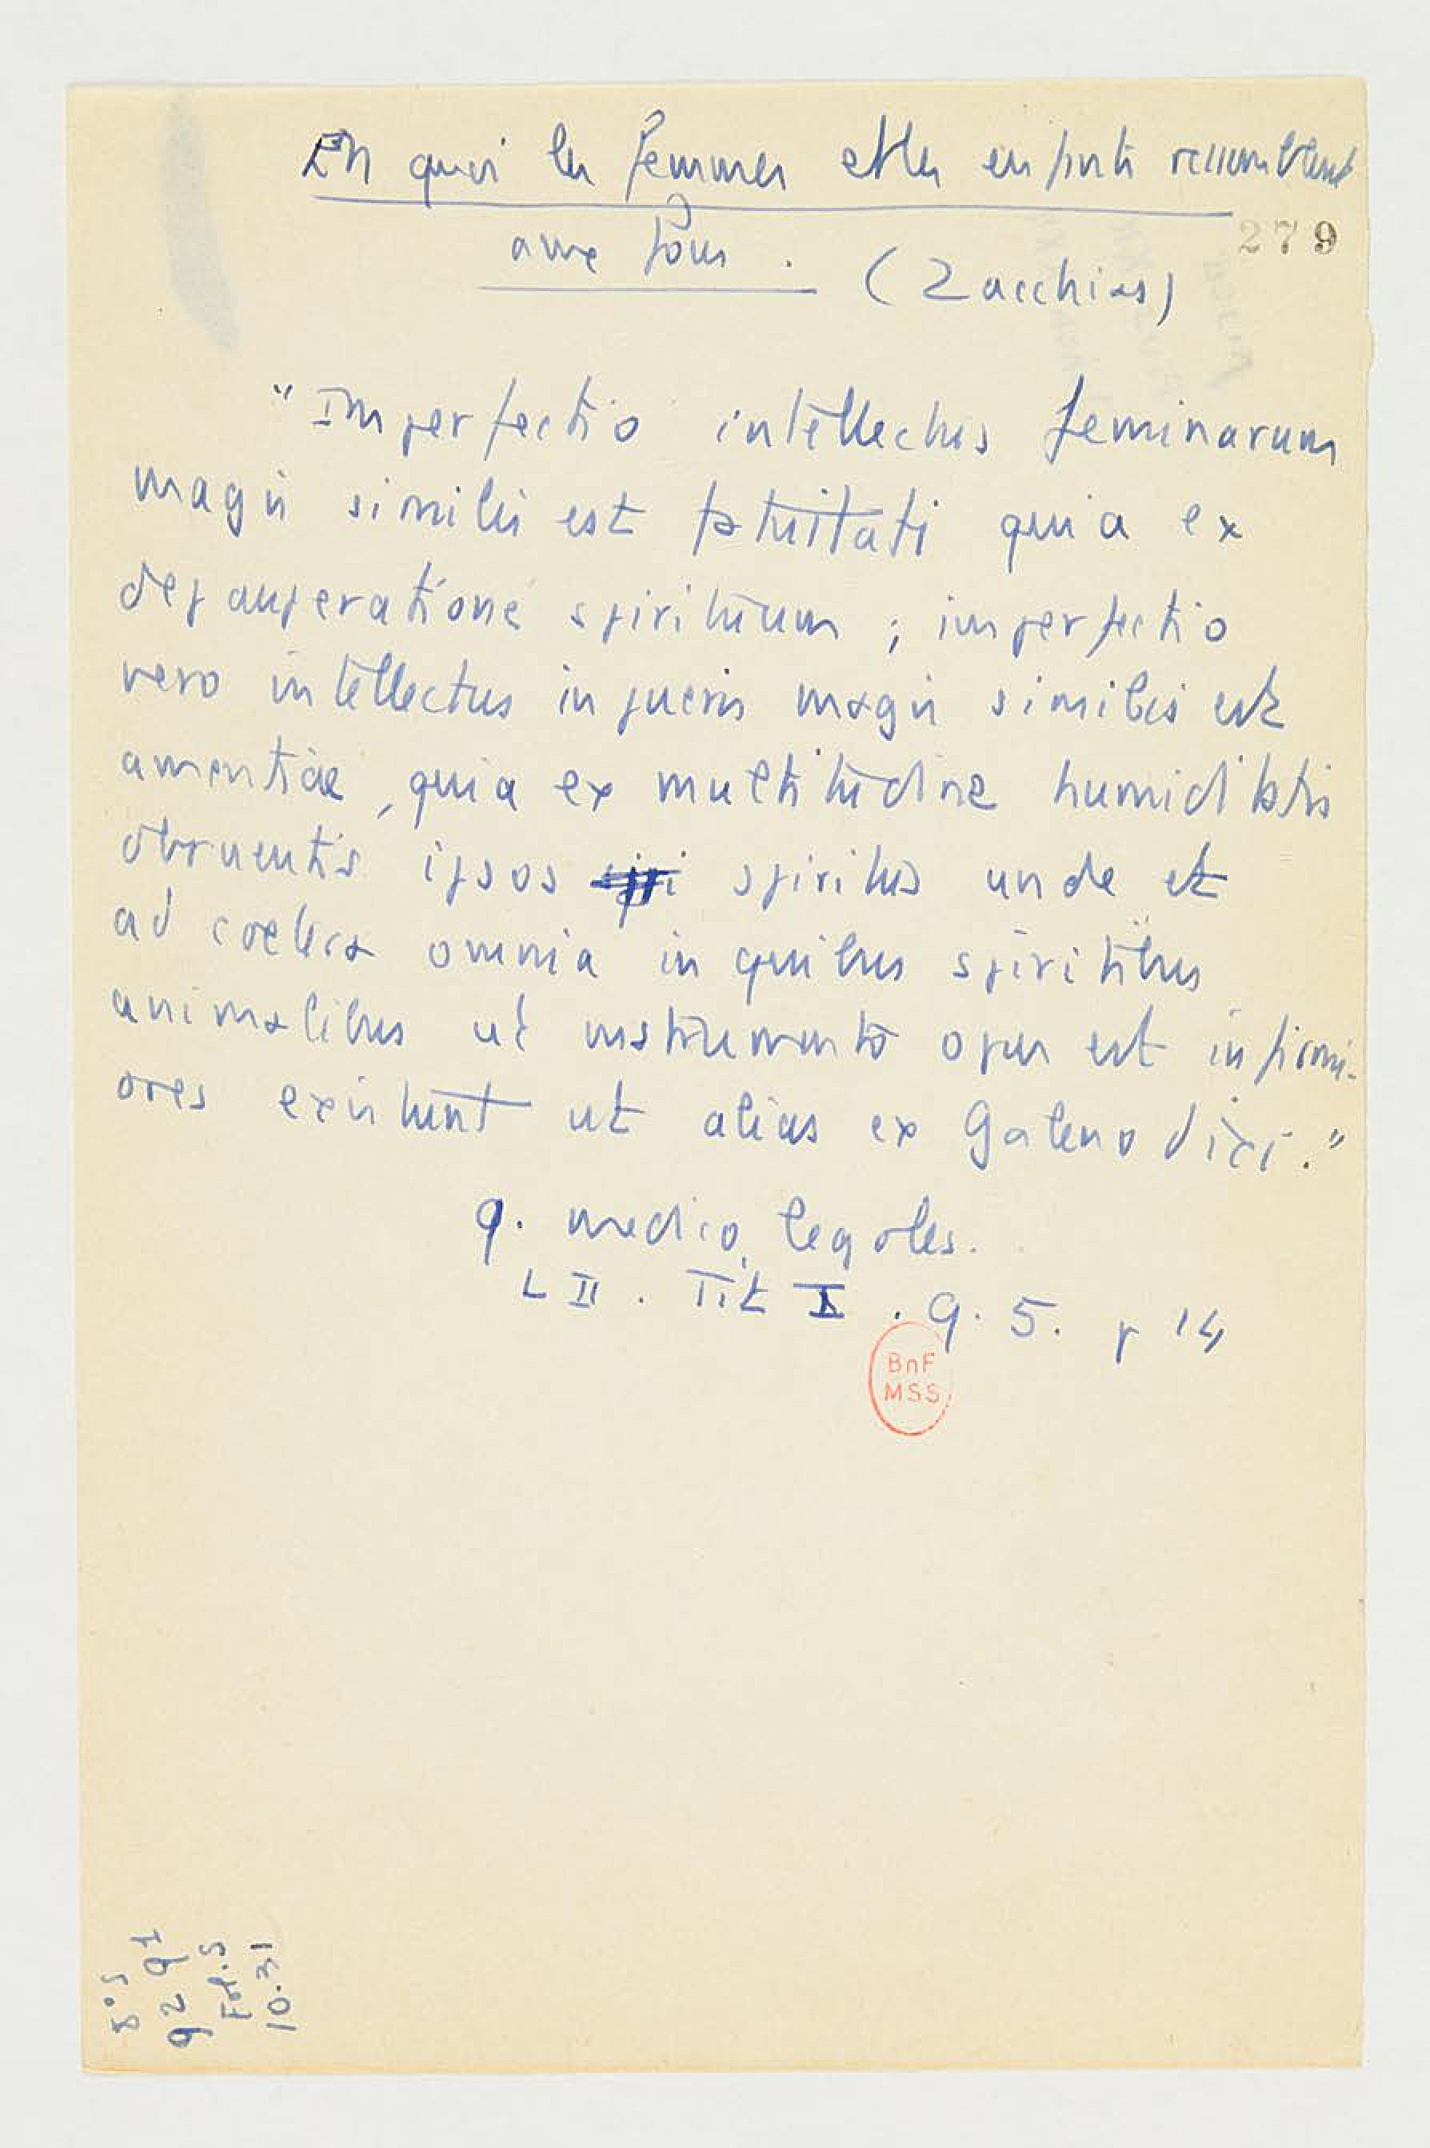 En quoi les femmes et les enfants ressemblent
279
aux fous. (Zacchias)
"Imperfectio intellectus feminarum
magis similis est fatuitati quia ex
depauperatione spirituum ; imperfectio
vero intellectus in pueris magis similis est
amentiae, quia ex multitudine humiditatis
obruentis ipsos spiritus unde et
ad coetera omnia in quibus spiritibus
animalibus ut instrumento opus est infirmi-
ores existunt ut alias ex Galeno dixi."
q. medico legales.
L II. Tit I. q. 5. p 14
BnF
MSS
8° S
92 91
Fol. S
10.31